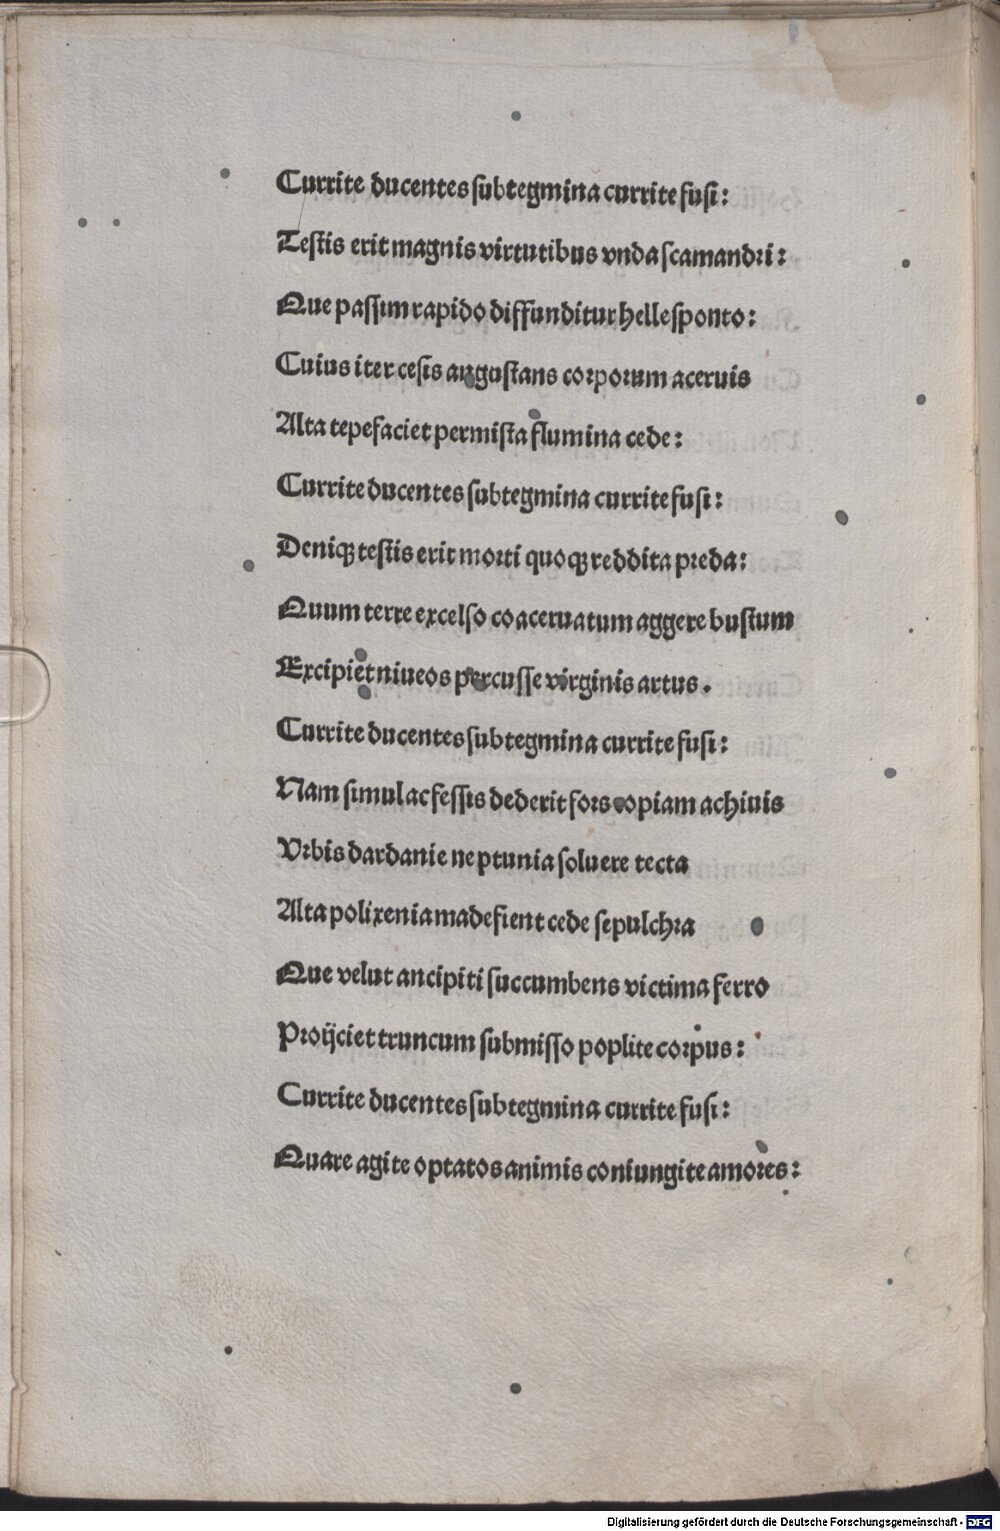 Currite ducentes subtegmina currite fusi:
Testis erit magnis virtutibus vnda scamandri:
Que passim rapido diffunditur hellesponto:
Cuius iter cesis angustans corporum aceruis
Alta tepefaciet permista flumina cede:
Currite ducentes subtegmina currite fusi:
Deniqꝫ testis erit morti quoqꝫ reddita preda:
Quum terre excelso coaceruatum aggere bustum
Excipiet niueos percusse virginis artus.
Currite ducentes subtegmina currite fusi:
Nam simulac fessis dederit fors copiam achiuis
Vrbis dardanie neptunia soluere tecta
Alta polixenia madefient cede sepulchra
Que velut ancipiti succumbens victima ferro
Proijciet truncum submisso poplite corpus:
Currite ducentes subtegmina currite fusi:
Quare agite optatos animis coniungite amores:
Digitalisierung gefördert durch die Deutsche Forschungsgemeinschaft - DFG